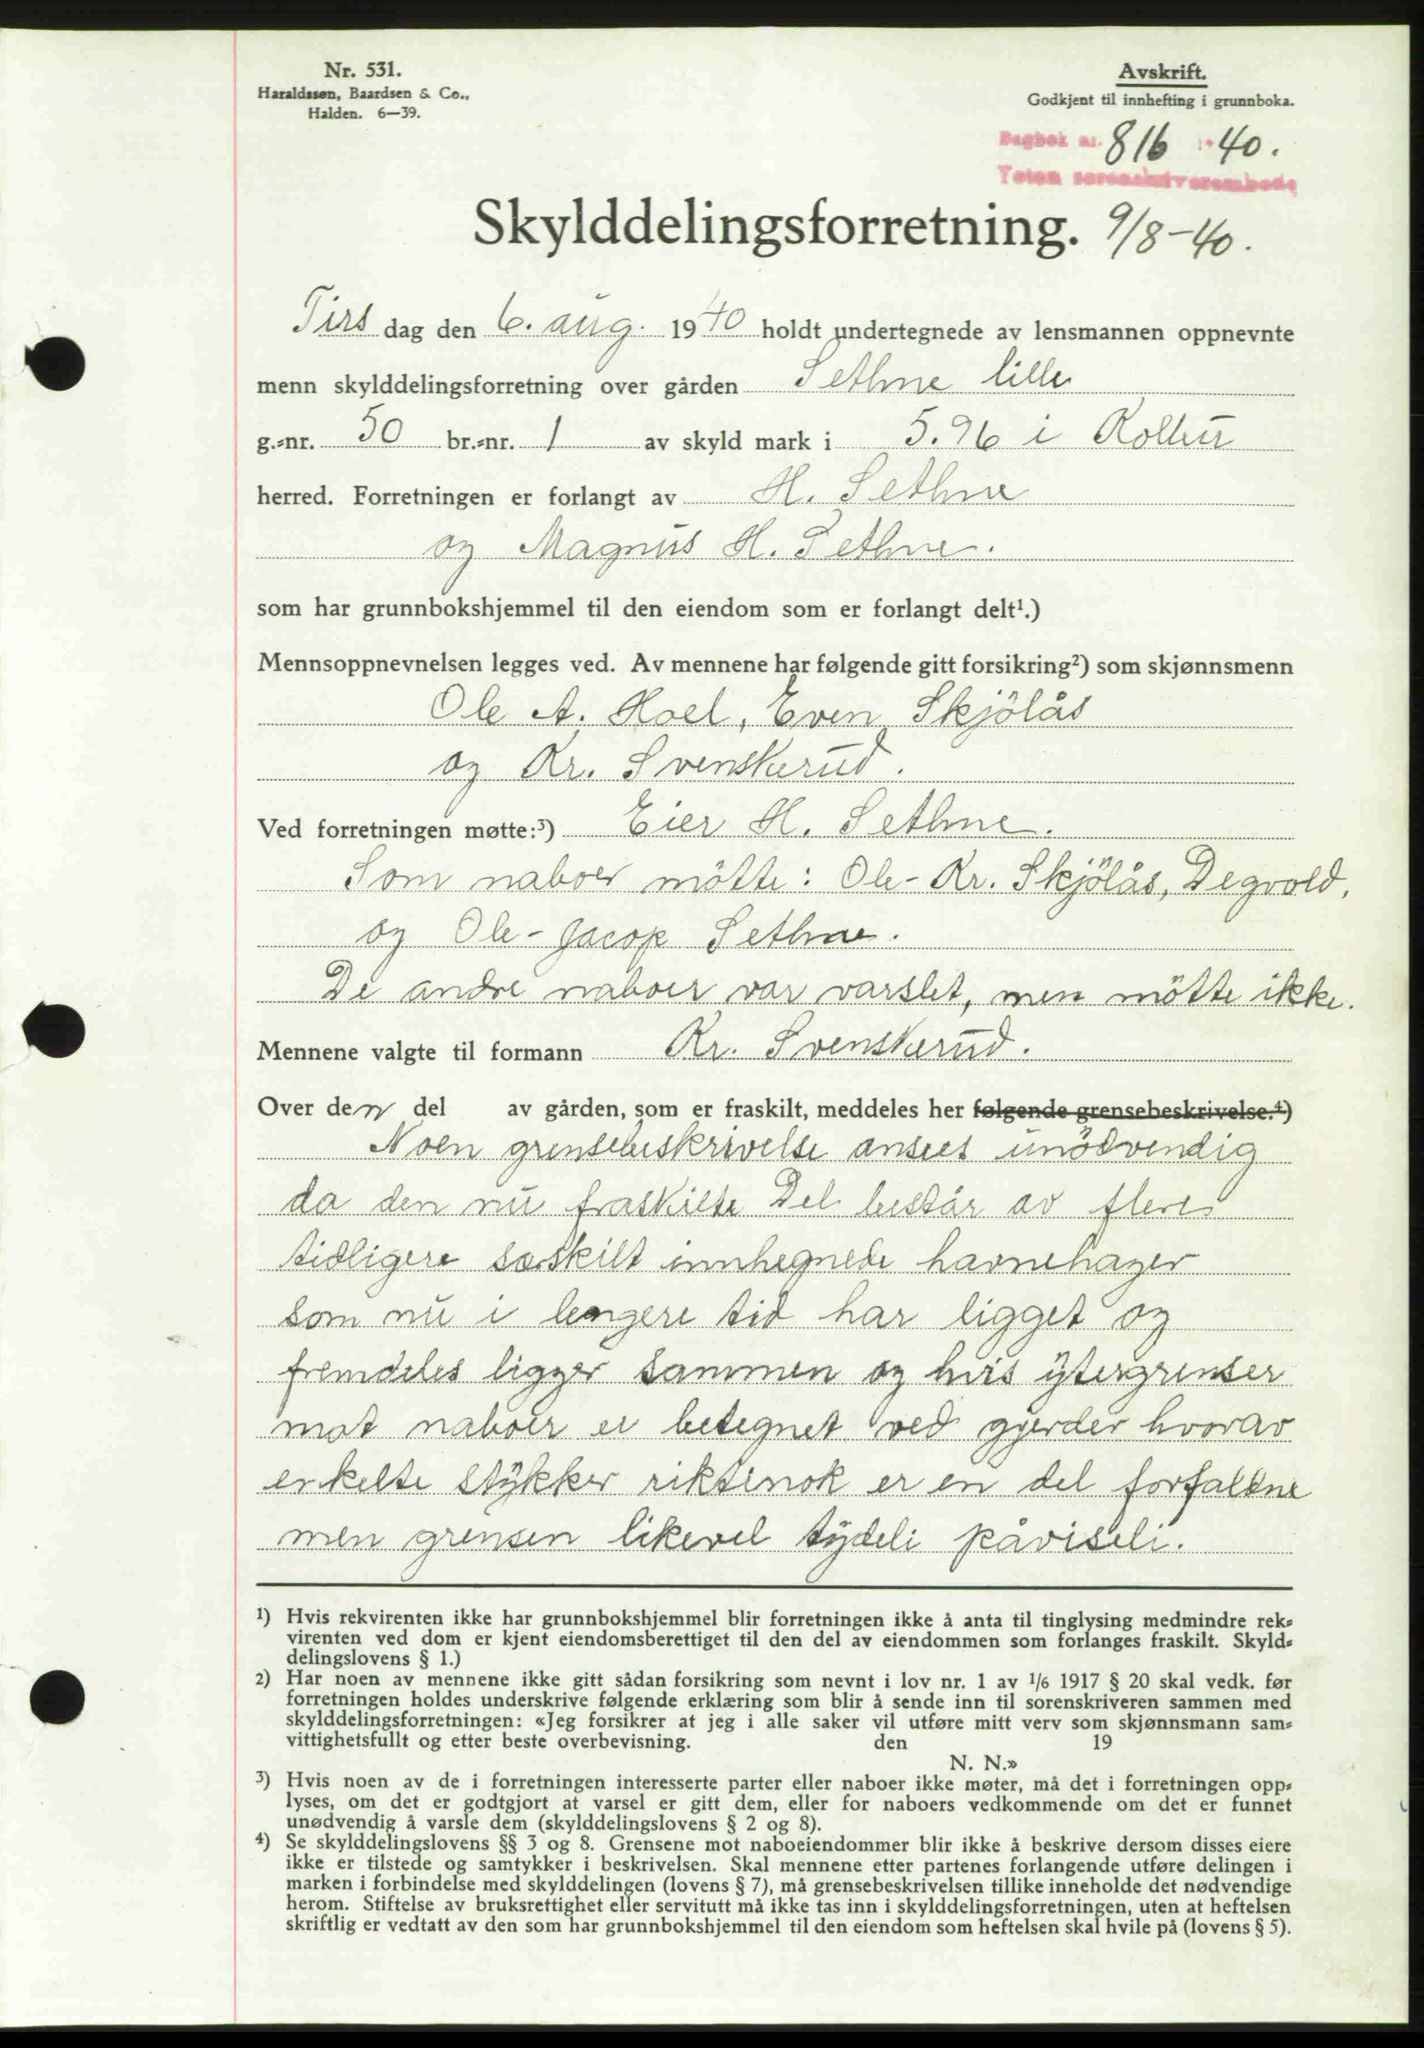 Nr. 531.
Haraldssen, Baardsen & Co.,
Halden. 6—39.
Avskrift.
Godkjent til innhefting i grunnboka.
Dagbok nr. 816 19 40.
Toten sorenskriverembede
Skylddelingsforretning. 9/8-40.
Tirs dag den 6. aug. 1940 holdt undertegnede av lensmannen oppnevnte
menn skylddelingsforretning over gården Sethne lille
g.-nr. 50 br.-nr. 1 av skyld mark i 5.96 i Kolbu
herred. Forretningen er forlangt av H. Sethne
og Magnus H. Sethne.
som har grunnbokshjemmel til den eiendom som er forlangt delt¹.)
Mennsoppnevnelsen legges ved. Av mennene har følgende gitt forsikring²) som skjønnsmenn
Ole A. Hoel, Even Skjölås
og Kr. Svenskerud.
Ved forretningen møtte:³) Eier H. Sethne.
Som naboer mötte: Ole-Kr. Skjölås, Degvold,
og Ole-Jacop Sethne.
De andre naboer var varslet, men mötte ikke.
Mennene valgte til formann Kr. Svenskerud.
Over den del av gården, som er fraskilt, meddeles her følgende grensebeskrivelse.⁴)
Noen grensebeskrivelse ansees unödvendig
da den nu fraskilte Del består av flere
tidligere særskilt innhegnede havnehager
som nu i lengere tid har ligget og
fremdeles ligger sammen og hvis ytergrenser
mot naboer er betegnet ved gjerder hvorav
enkelte stykker riktinok er en del forfaldne
men grensen likevel tydeli påviseli.
¹) Hvis rekvirenten ikke har grunnbokshjemmel blir forretningen ikke å anta til tinglysing medmindre rek-
virenten ved dom er kjent eiendomsberettiget til den del av eiendommen som forlanges fraskilt. Skyld-
delingslovens § 1.)
²) Har noen av mennene ikke gitt sådan forsikring som nevnt i lov nr. 1 av 1/6 1917 § 20 skal vedk. før
forretningen holdes underskrive følgende erklæring som blir å sende inn til sorenskriveren sammen med
skylddelingsforretningen: «Jeg forsikrer at jeg i alle saker vil utføre mitt verv som skjønnsmann sam-
vittighetsfullt og etter beste overbevisning. den 19
N. N.»
³) Hvis noen av de i forretningen interesserte parter eller naboer ikke møter, må det i forretningen opp-
lyses, om det er godtgjort at varsel er gitt dem, eller for naboers vedkommende om det er funnet
unødvendig å varsle dem (skylddelingslovens § 2 og 8).
⁴) Se skylddelingslovens §§ 3 og 8. Grensene mot naboeiendommer blir ikke å beskrive dersom disses eiere
ikke er tilstede og samtykker i beskrivelsen. Skal mennene etter partenes forlangende utføre delingen i
marken i forbindelse med skylddelingen (lovens § 7), må grensebeskrivelsen tillike inneholde det nødvendige
herom. Stiftelse av bruksrettighet eller servitutt må ikke tas inn i skylddelingsforretningen, uten at heftelsen
skriftlig er vedtatt av den som har grunnbokshjemmel til den eiendom som heftelsen skal hvile på (lovens § 5).